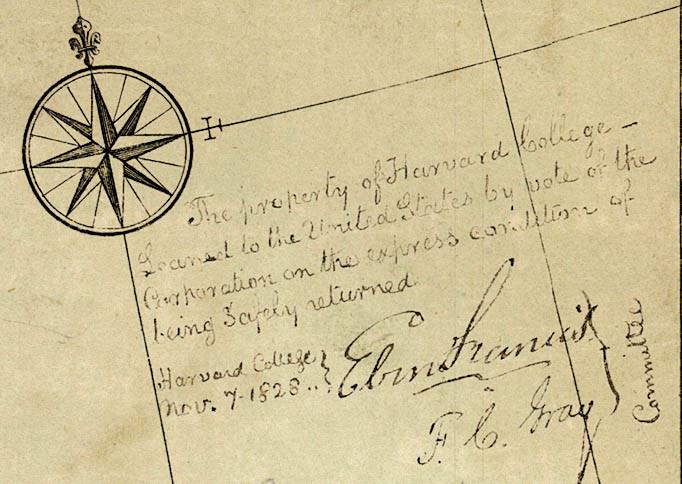 E
The property of Harvard College –
Loaned to the United States by vote of the
Corporation on the express condition of
being Safely returned.
Harvard College }
Nov. 7 - 1828 .. }
Eben Francis }
F. C. Gray } Committee